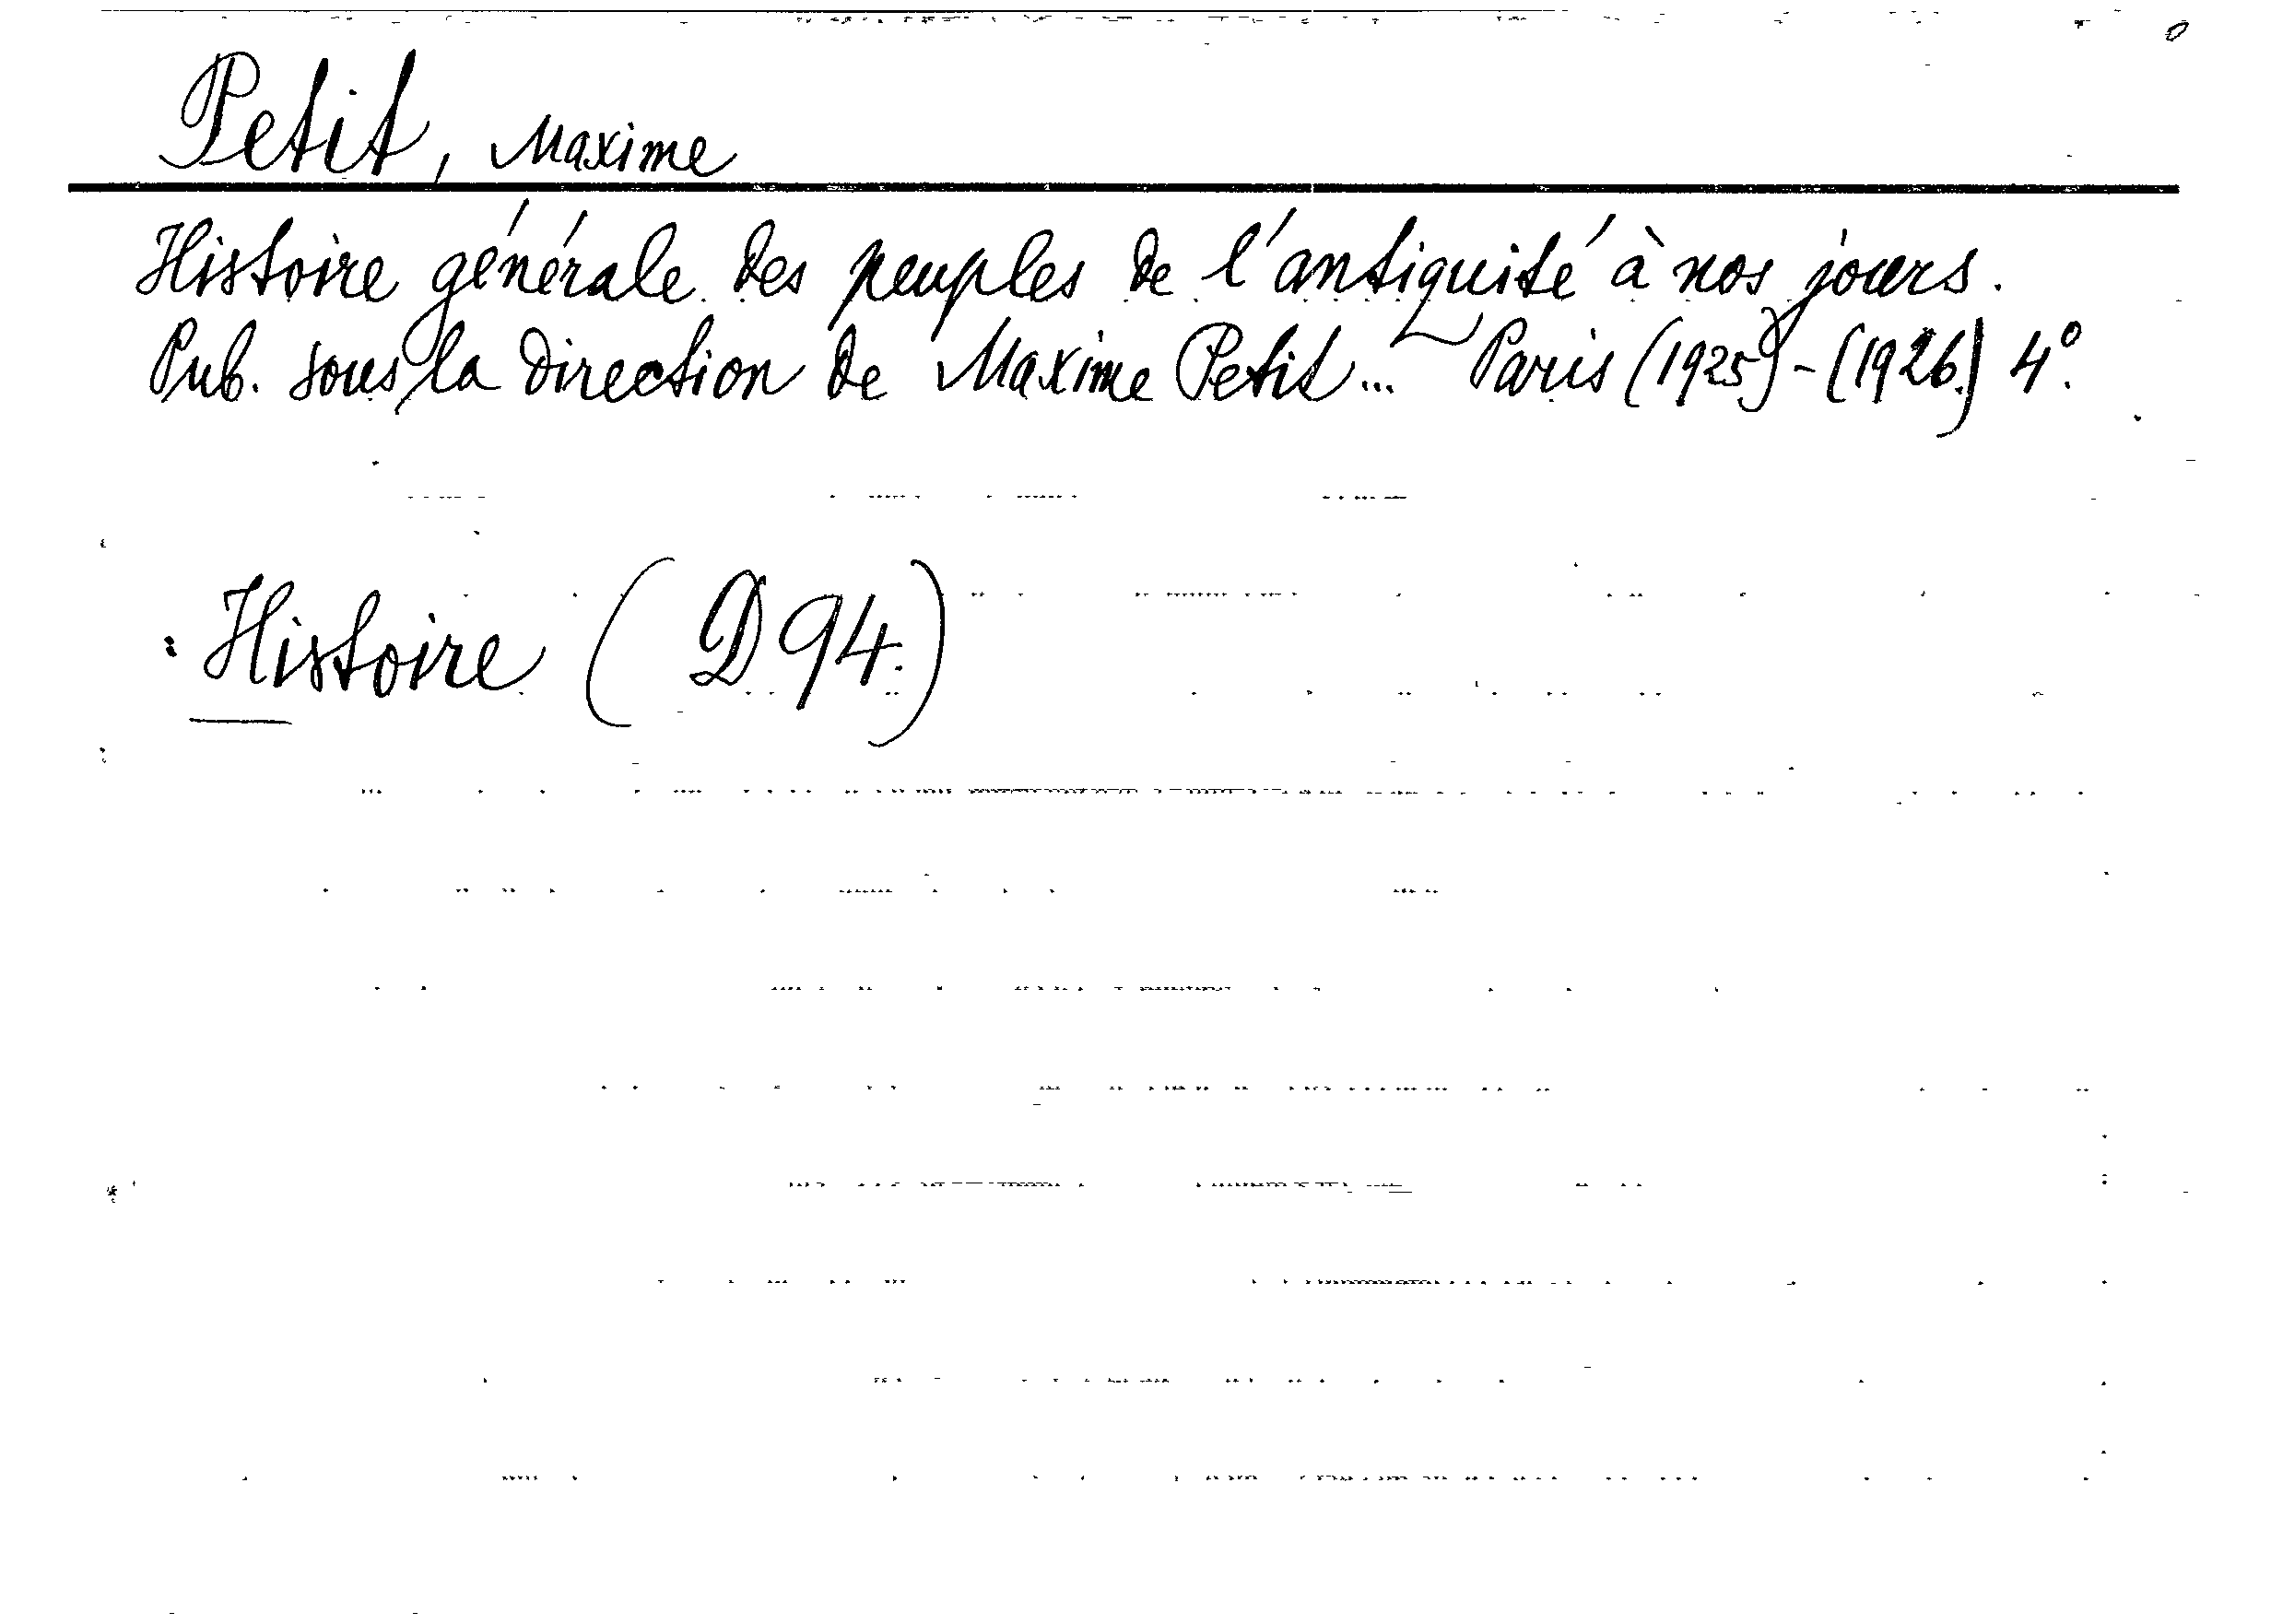 Petit, Maxime
Histoire générale des peuples de l'antiquité à nos jours.
Pub. sous la direction de Maxime Petit... Paris (1925)-(1926.) 4°.
: Histoire (D 94.)